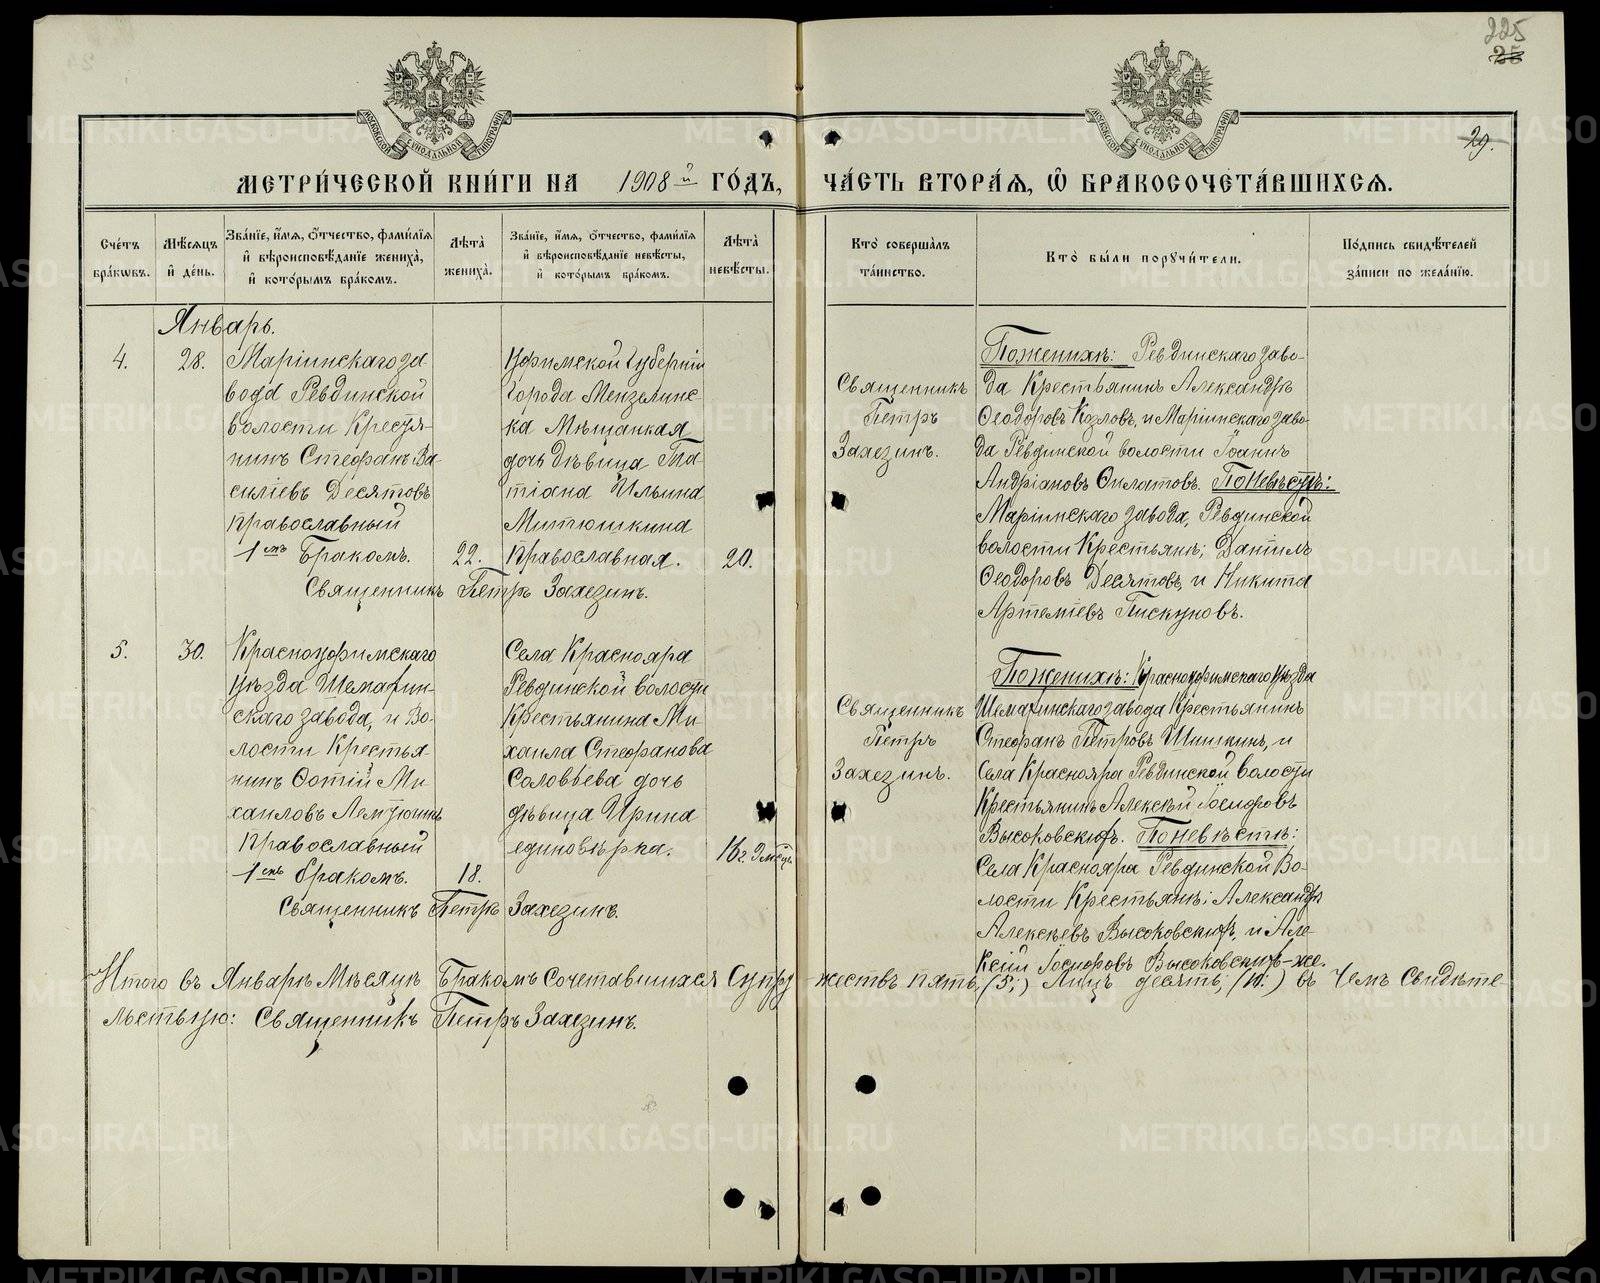 225
25
29.
МОСКОВСКОЙ СѴНОДАЛЬНОЙ ТИПОГРАФІИ
МОСКОВСКОЙ СѴНОДАЛЬНОЙ ТИПОГРАФІИ
МЕТРИ́ЧЕСКОЙ КНИ́ГИ НА 1908й ГО́ДЪ,
ЧА́СТЬ ВТОРА́Я, Ѽ БРАКОСОЧЕТА́ВШИХСЯ.
Сче́тъ бра́кѡвъ.
Мѣ́сяцъ и҆ де́нь.
Зва́нїе, и҆́мя, ѻ҆́тчество, фами́лїя
и҆ вѣроисповѣ́данїе жениха̀,
и҆ кото́рымъ бра́комъ.
Лѣта̀ жениха̀.
Зва́нїе, и҆́мя, ѻ҆́тчество, фами́лїя
и҆ вѣроисповѣ́данїе невѣ́сты,
и҆ кото́рымъ бра́комъ.
Лѣта̀ невѣ́сты.
Кто̀ соверша́лъ та́инство.
Кто̀ бы́ли порꙋчи́тели.
По́дпись свидѣ́телей
за́писи по жела́нїю.
Январь.
4.
28.
Маріинскаго за
вода Ревдинской
волости Кресть-
янинъ Стефанъ Ва-
силіевъ Десятовъ
православный
1мъ Бракомъ.
22.
Уфимской Губерніи
Города Мензелинс-
ка Мѣщанкая
дочь дѣвица Та-
тіана Ильина
Митюшкина
Православная.
20.
Священникъ Петръ Захезинъ.
Священникъ
Петръ
Захезинъ.
По женихѣ: Ревдинскаго заво-
да Крестьянинъ Александръ
Ѳеодоровъ Козловъ, и Маріинскаго заво-
да Ревдинской волости Іоаннъ
Андріановъ Филатовъ. По Невѣстѣ:
Маріинскаго завода, Ревдинской
волости Крестьяне; Даніилъ
Ѳеодоровъ Десятовъ, и Никита
Артеміевъ Пискуновъ.
5.
30.
Красноуфимскаго
Уѣзда Шемахин-
скаго завода, и Во-
лости Крестья
нинъ Фотій Ми-
хаиловъ Лемтюгинъ
Православный
1мъ бракомъ.
18.
Села Краснояра
Ревдинской волости
Крестьянина Ми-
хаила Стефанова
Соловьева дочь
дѣвица Ирина
единовѣрка.
16 г. 9 мѣсяц.
Священникъ Петръ Захезинъ.
Священникъ
Петръ
Захезинъ.
По женихѣ: Красноуфимскаго Уѣзда
Шемахинскаго завода Крестьянинъ
Стефанъ Петровъ Шишкинъ, и
Села Краснояра Ревдинской волости
Крестьянинъ Алексѣй Іосифовъ
Высоковскихъ. По невѣстѣ:
Села Краснояра Ревдинской Во-
лости Крестьяне; Александръ
Алексѣевъ Высоковскихъ, и Але-
ксѣй Іосифовъ Высоковскихъ-же.
Итого въ Январѣ Мѣсяцѣ Бракомъ Сочетавшихся Супру-жествъ пять, (5;) Лицъ десять, (10:) въ Чемъ Свидѣте-
льствую: Священникъ Петръ Захезинъ.
METRIKI.GASO-URAL.RU